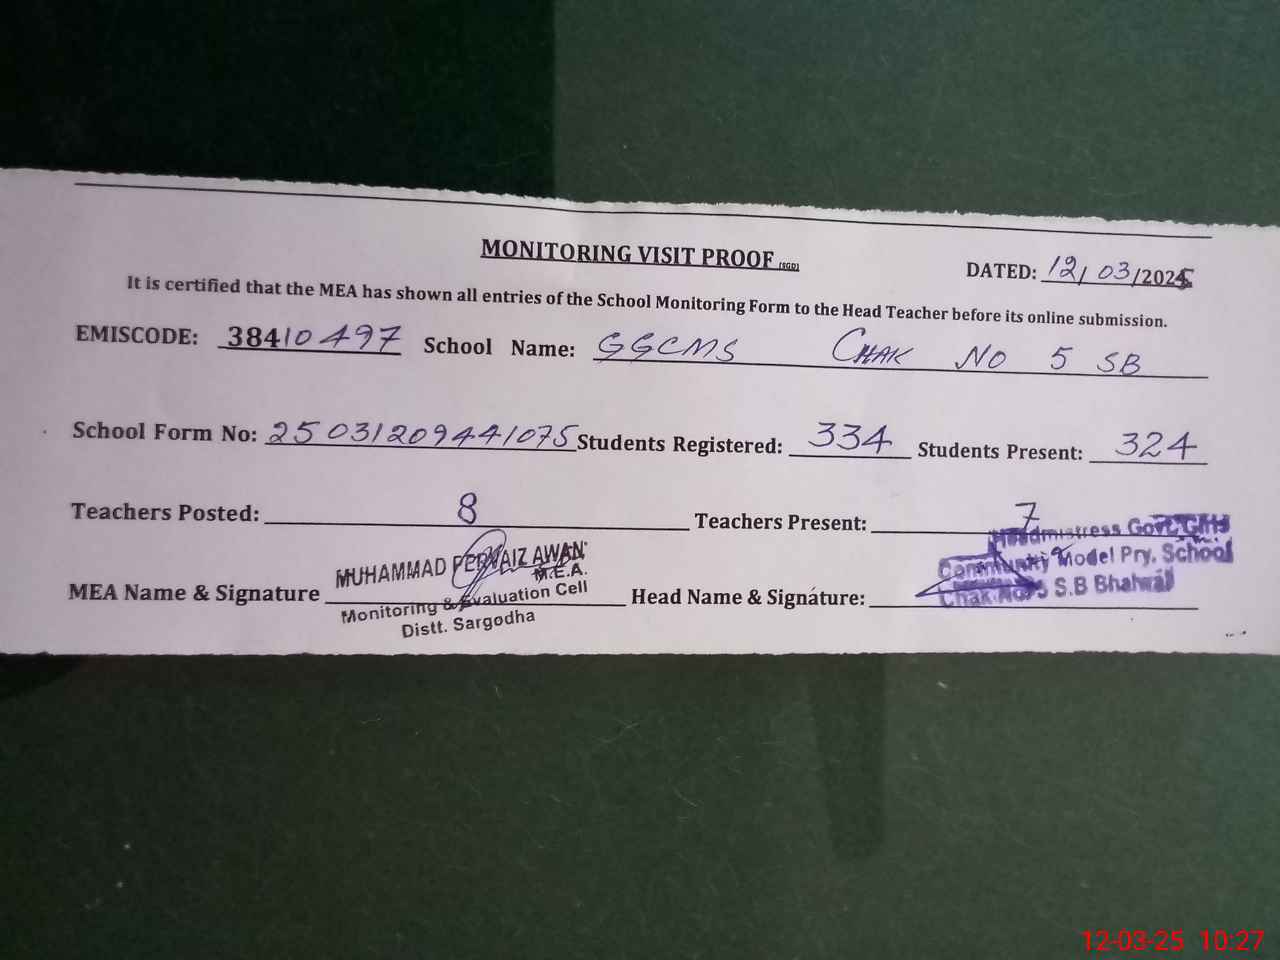 MONITORING VISIT PROOF (SGD)
DATED: 12/03/2025
It is certified that the MEA has shown all entries of the School Monitoring Form to the Head Teacher before its online submission.
EMISCODE: 38410497 School Name: GGCMS CHAK NO 5 SB
School Form No: 25031209441075 Students Registered: 334 Students Present: 324
Teachers Posted: 8 Teachers Present: 7
MEA Name & Signature MUHAMMAD PERVAIZ AWAN
M.E.A.
Monitoring & Evaluation Cell
Distt. Sargodha
Head Name & Signature:
Headmistress Govt. Girls
Community Model Pry. School
Chak No. 5 S.B Bhalwal
12-03-25 10:27